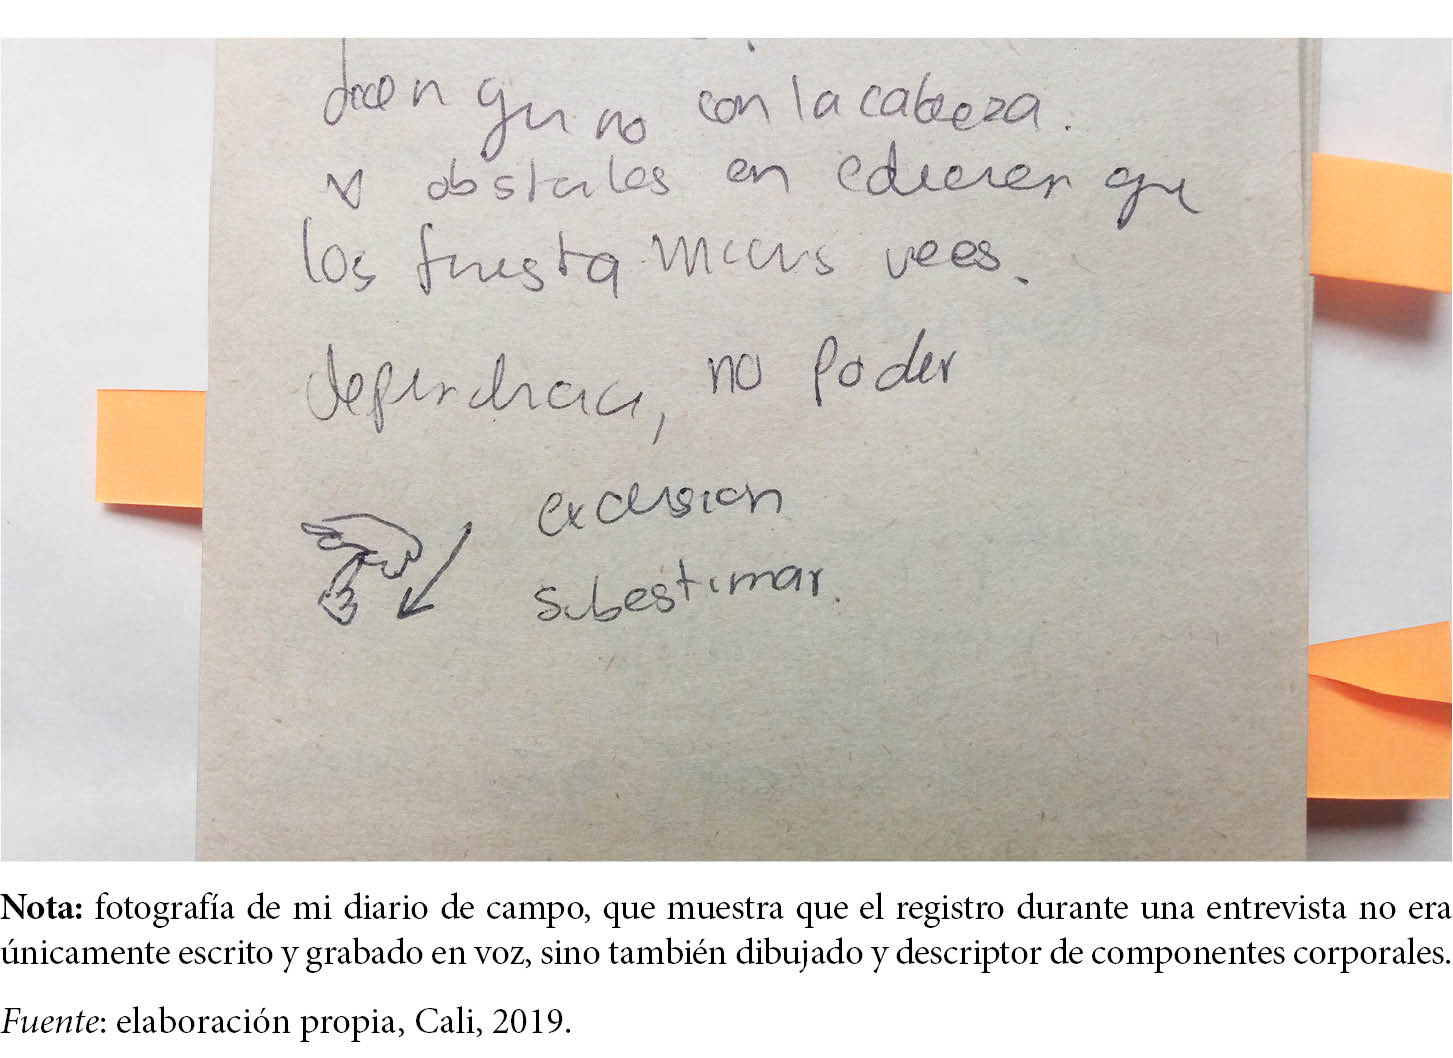 dicen que no con la cabeza.
obstaculos en educacion que
los frustra muchas veces.
dependencia, no poder
exclusion
subestimar.
Nota: fotografía de mi diario de campo, que muestra que el registro durante una entrevista no era
únicamente escrito y grabado en voz, sino también dibujado y descriptor de componentes corporales.
Fuente: elaboración propia, Cali, 2019.